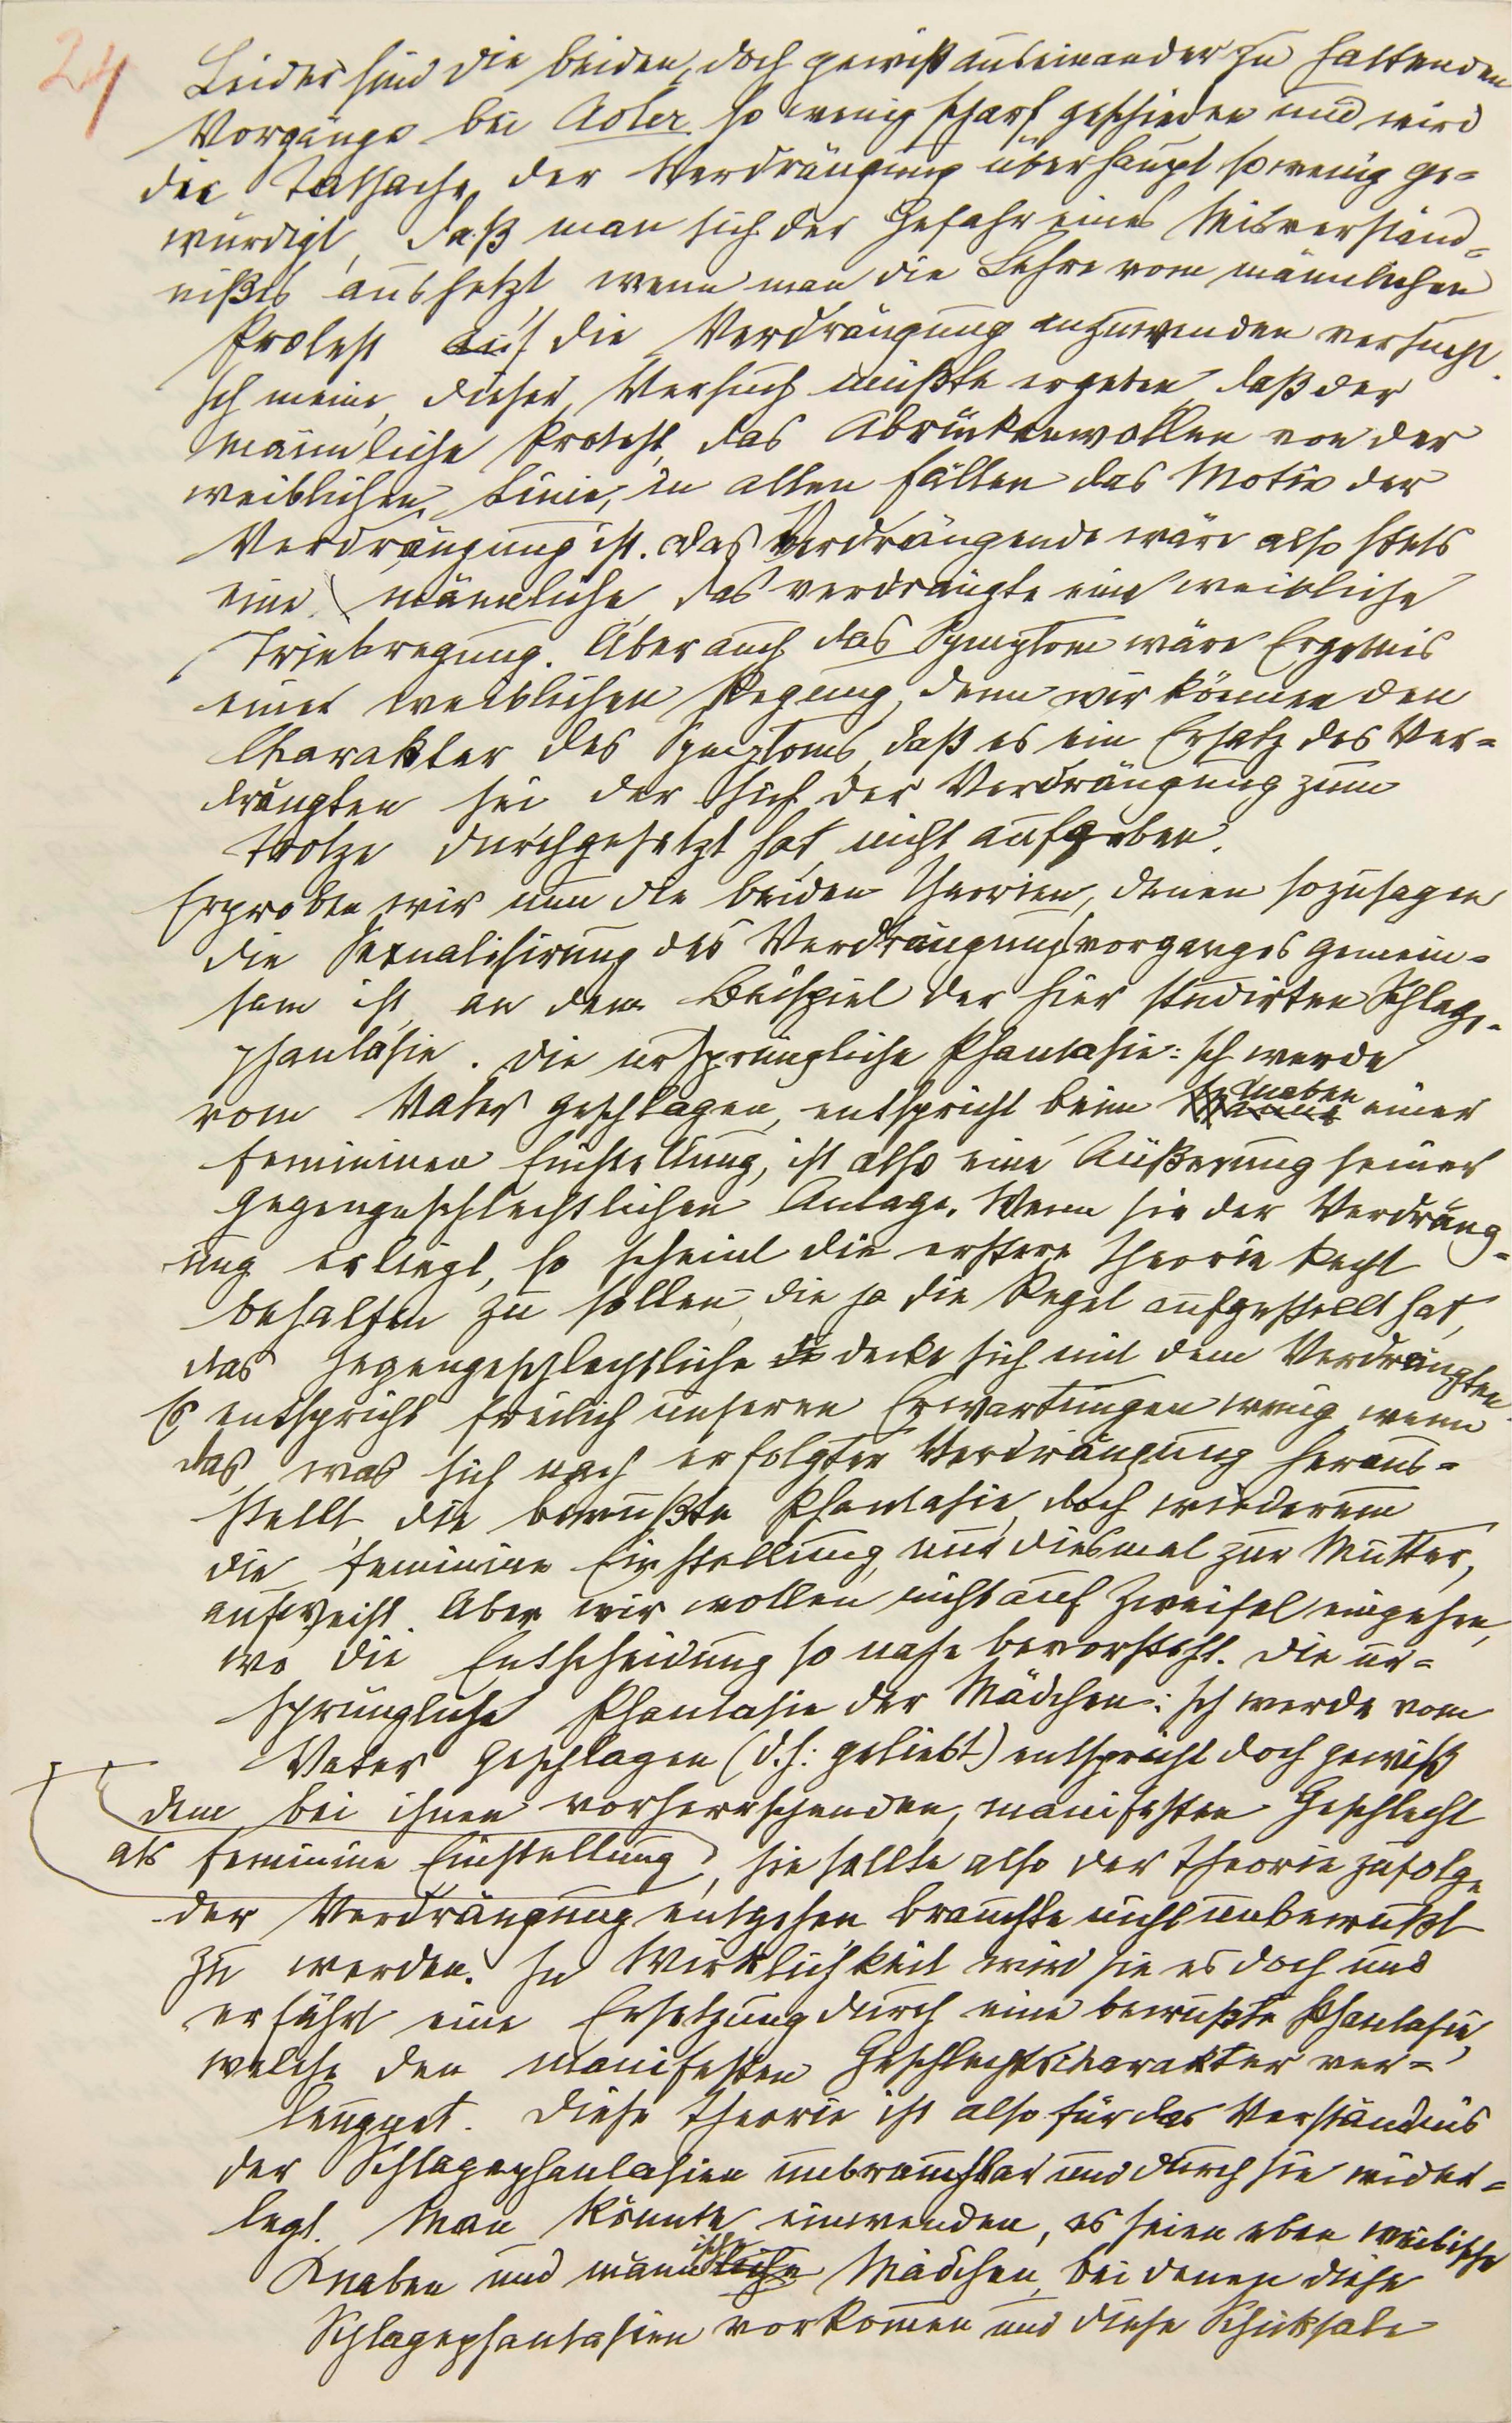 24
Leider sind die beiden, doch gewiß auseinander zu haltenden
Vorgänge bei Adler so wenig scharf geschieden und wird
die Tatsache der Verdrängung überhaupt so wenig ge=
würdigt, daß man sich der Gefahr eines Misverständ=
nißes aussetzt, wenn man die Lehre vom männlichen
Protest auf die Verdrängung anzuwenden versucht.
Ich meine, dieser Versuch müßte ergeben, daß der
männliche Protest, das Abrückenwollen von der
weiblichen Linie, in allen Fällen das Motiv der
Verdrängung ist. Das Verdrängende wäre also stets
eine männliche, das verdrängte eine weibliche
Triebregung. Aber auch das Symptom wäre Ergebnis
einer weiblichen Regung, denn wir können den
Charakter des Symptoms, daß es ein Ersatz des Ver=
drängten sei, der sich der Verdrängung zum
Trotze durchgesetzt hat, nicht aufgeben.
Erproben wir nun die beiden Theorien, denen sozusagen
die Sexualisirung des Verdrängungsvorganges gemein=
sam ist, an dem Beispiel der hier studirten Schlage=
phantasie. Die ursprüngliche Phantasie: Ich werde
vom Vater geschlagen, entspricht beim Knaben einer
femininen Einstellung, ist also eine Äußerung seiner
gegengeschlechtlichen Anlage. Wenn sie der Verdräng=
ung erliegt, so scheint die erstere Theorie Recht
behalten zu sollen, die ja die Regel aufgestellt hat,
das Gegengeschlechtliche de decke sich mit dem Verdrängten.
Es entspricht freilich unseren Erwartungen wenig, wenn
das, was sich nach erfolgter Verdrängung heraus=
stellt, die bewußte Phantasie, doch wiederum
die feminine Einstellung, nur diesmal zur Mutter,
aufweist. Aber wir wollen nicht auf Zweifel eingehen,
wo die Entscheidung so nahe bevorsteht. Die ur=
sprüngliche Phantasie der Mädchen: Ich werde vom
Vater geschlagen (d.h.: geliebt) entspricht doch gewiß
dem bei ihnen vorherrschenden, manifesten Geschlecht
als feminine Einstellung, sie sollte also der Theorie zufolge
der Verdrängung entgehen, brauchte nicht unbewußt
zu werden. In Wirklichkeit wird sie es doch und
erfährt eine Ersetzung durch eine bewußte Phantasie,
welche den manifesten Geschlechtscharakter ver=
leugnet. Diese Theorie ist also für das Verständnis
der Schlagephantasien unbrauchbar und durch sie wider=
legt. Man könnte einwenden, es seien eben weibische
Knaben und männische Mädchen, bei denen diese
Schlagephantasien vorkommen und diese Schicksale